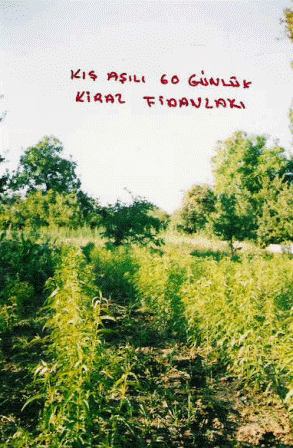 KIŞ AŞILI 60 GÜNLÜK
KİRAZ FİDANLAĞI